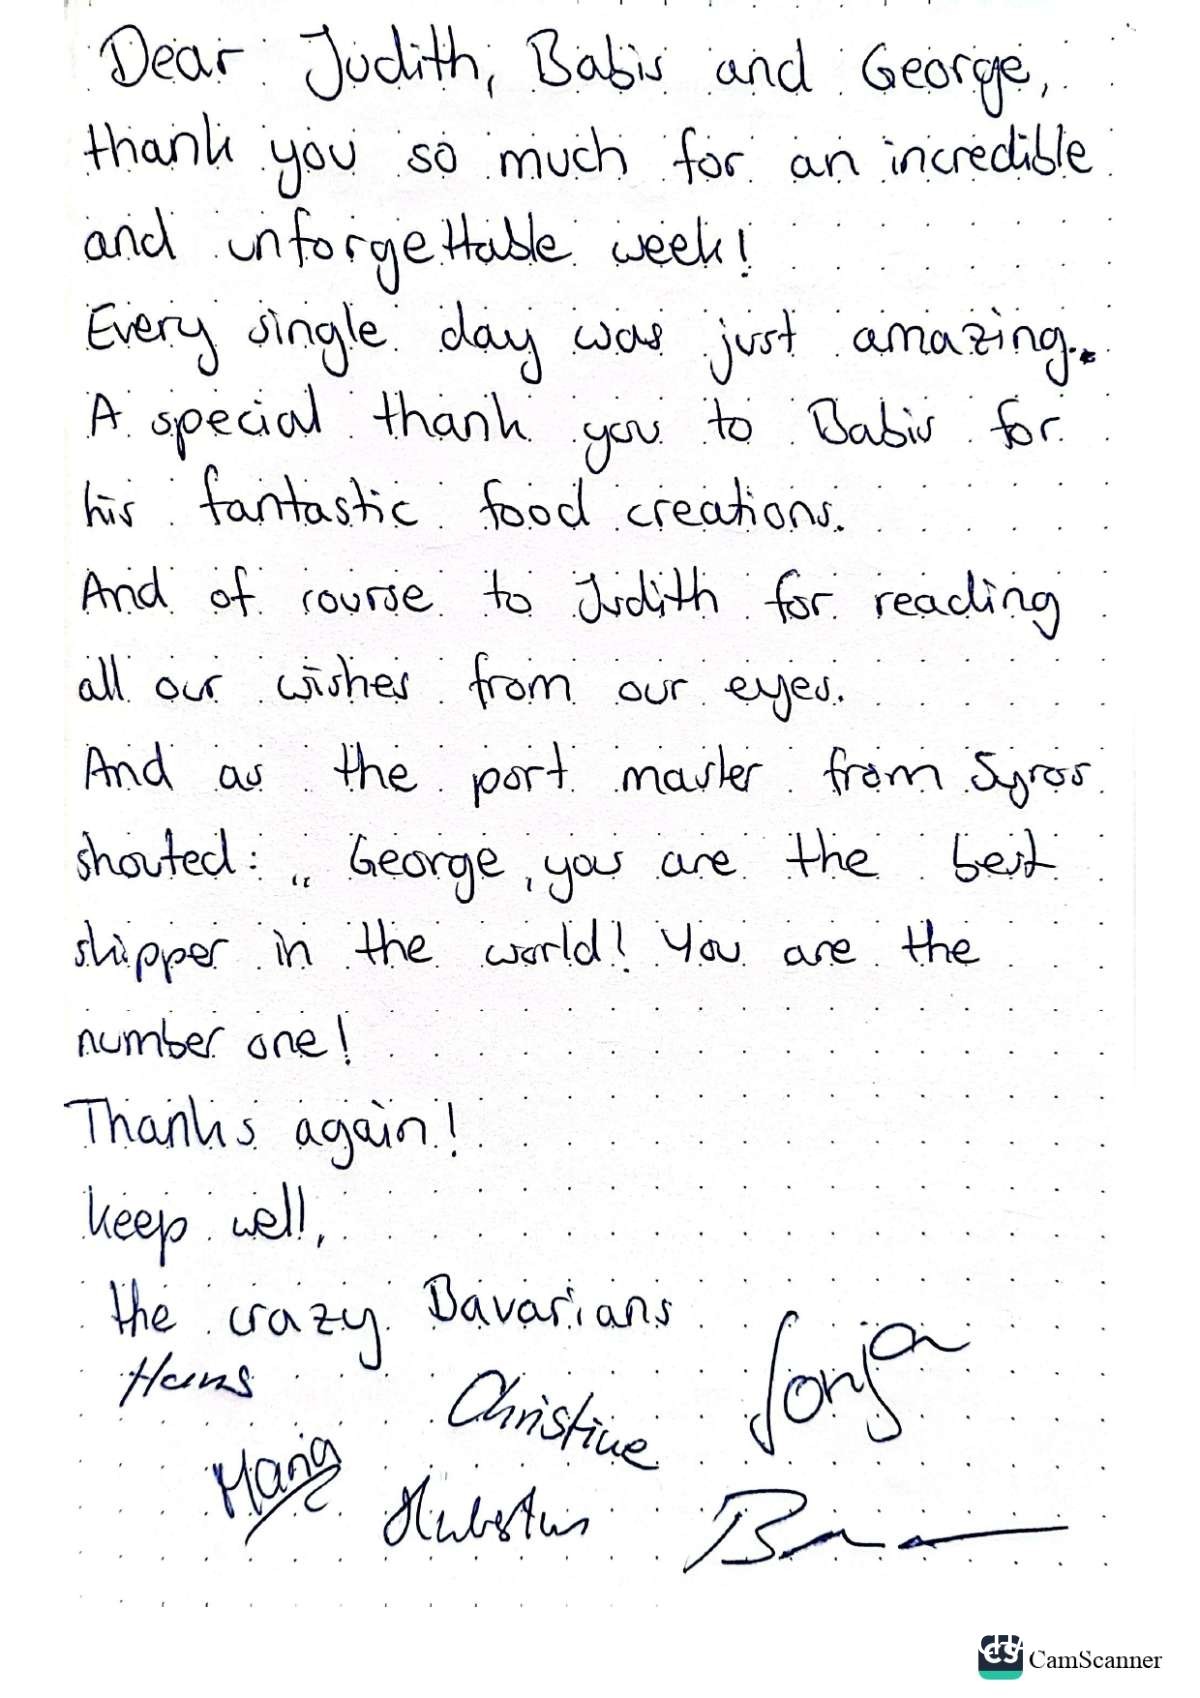 Dear Judith, Babis and George,
thank you so much for an incredible
and unforgettable week!
Every single day was just amazing..
A special thank you to Babis for
his fantastic food creations.
And of course to Judith for reading
all our wishes from our eyes.
And as the port master from Syros
shouted: „ George, you are the best
skipper in the world! You are the
number one!
Thanks again!
keep well,
the crazy Bavarians
Hans
Christine
Sonja
Maria
Hubertus
CS CamScanner